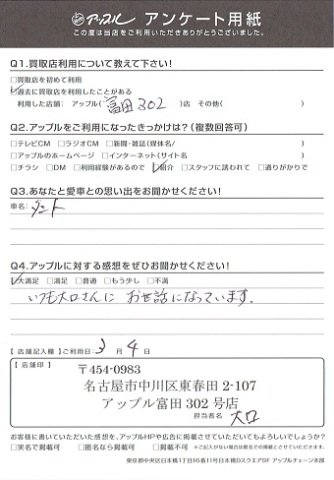 アップル アンケート用紙
この度は当店をご利用いただきありがとうございました。
Q1.買取店利用について教えて下さい!
□買取店を初めて利用
☑過去に買取店を利用したことがある
利用した店舗: アップル(富田302)店 その他( )
Q2.アップルをご利用になったきっかけは?(複数回答可)
□テレビCM □ラジオCM □新聞・雑誌(媒体名/ )
□アップルのホームページ □インターネット(サイト名 )
□チラシ □DM □利用経験があるので ☑紹介 □スタッフに誘われて □通りがかりで
Q3.あなたと愛車との思い出をお聞かせください!
車名: タント
Q4.アップルに対する感想をぜひお聞かせください!
☑大満足 □満足 □普通 □もう少し □不満
いつも大口さんに お世話になっています。
【店舗記入欄】ご利用日: 3月4日
【店舗印】
〒454-0983
名古屋市中川区東春田2-107
アップル富田302号店
担当者名 大口
お客様に書いていただいた感想を、アップルHPや広告に掲載させていただいてもよろしいでしょうか?
□実名で掲載可 □匿名なら掲載可 □掲載不可 ※ご記入がない場合は匿名での掲載とさせていただきます。
東京都中央区日本橋1丁目 アップルチェーン本部